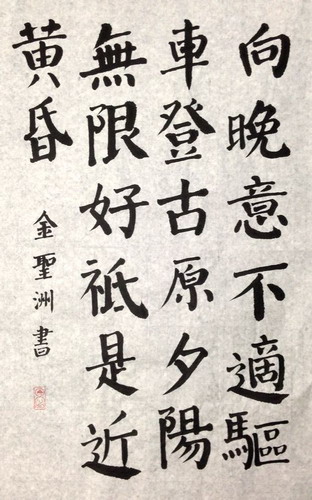 向晚意不適驅
車登古原夕陽
無限好祇是近
黄昏
金聖洲書